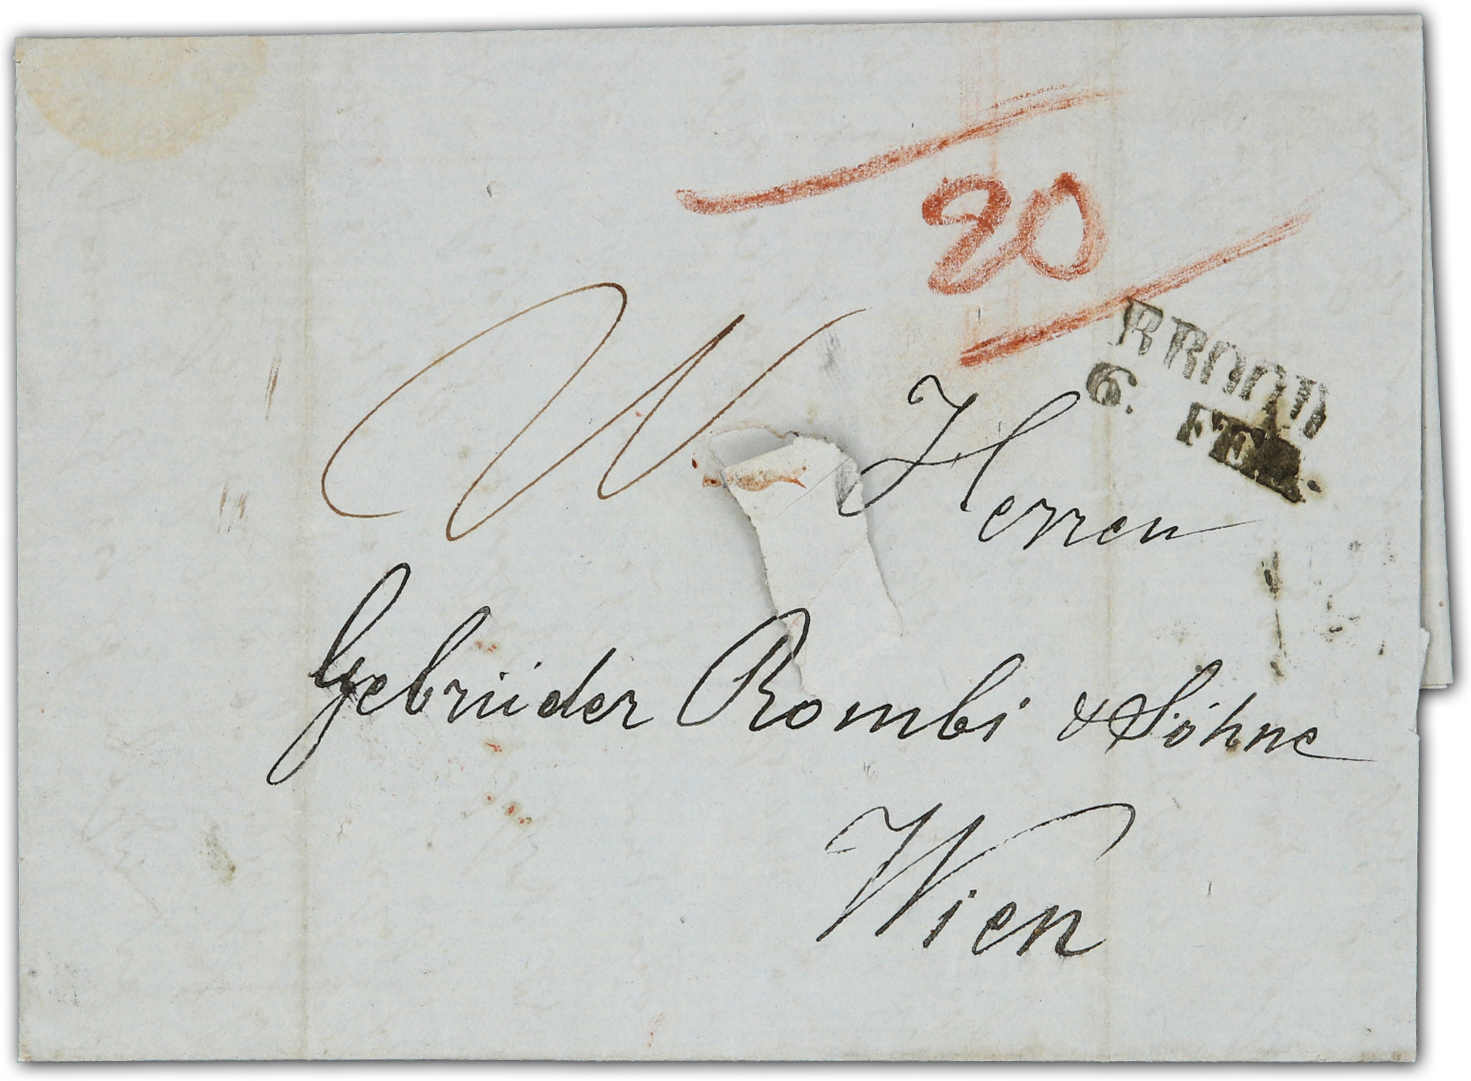 20
BROOD
6. FEB.
Herren
Gebrüder Rombi & Söhne
Wien